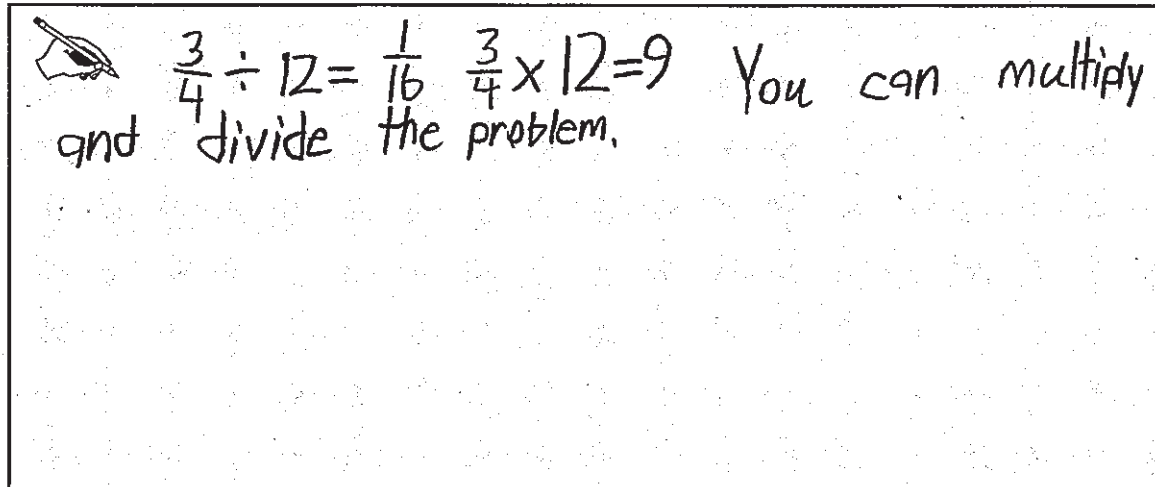 3/4 ÷ 12 = 1/16 3/4 x 12=9 You can multiply
and divide the problem.